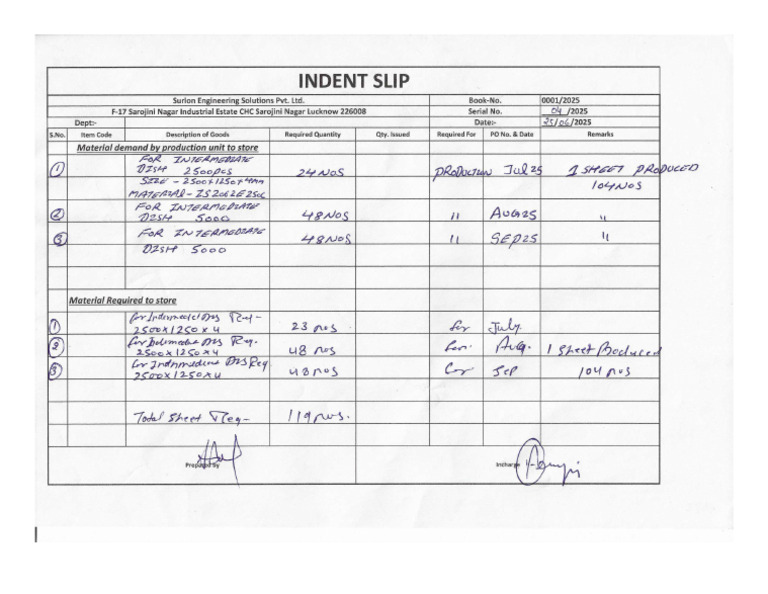 INDENT SLIP
Surlon Engineering Solutions Pvt. Ltd. Book-No. 0001/2025
F-17 Sarojini Nagar Industrial Estate CHC Sarojini Nagar Lucknow 226008 Serial No. 04 /2025
Dept:- Date:- 25/06/2025
S.No. Item Code Description of Goods Required Quantity Qty. Issued Required For PO No. & Date Remarks
Material demand by production unit to store
1 FOR INTERMEDIATE
DISH 2500pcs 24 NOS PRODUCTION Jul 25 1 SHEET PRODUCED
SIZE - 2500x1250x4mm 104 NOS
MATERIAL - IS2062E250C
2 FOR INTERMEDIATE
DISH 5000 48 NOS " AUG 25 "
3 FOR INTERMEDIATE
DISH 5000 48 NOS " SEP 25 "
Material Required to store
1 for Req-
2500x1250x4 23 nos for July
2 for Req.
2500x1250x4 48 nos for Aug. 1 Sheet Produced
3 for Req
2500x1250x4 48 nos for Sep 104 nos
Total Sheet Req- 119 nos.
Prepared By Incharge